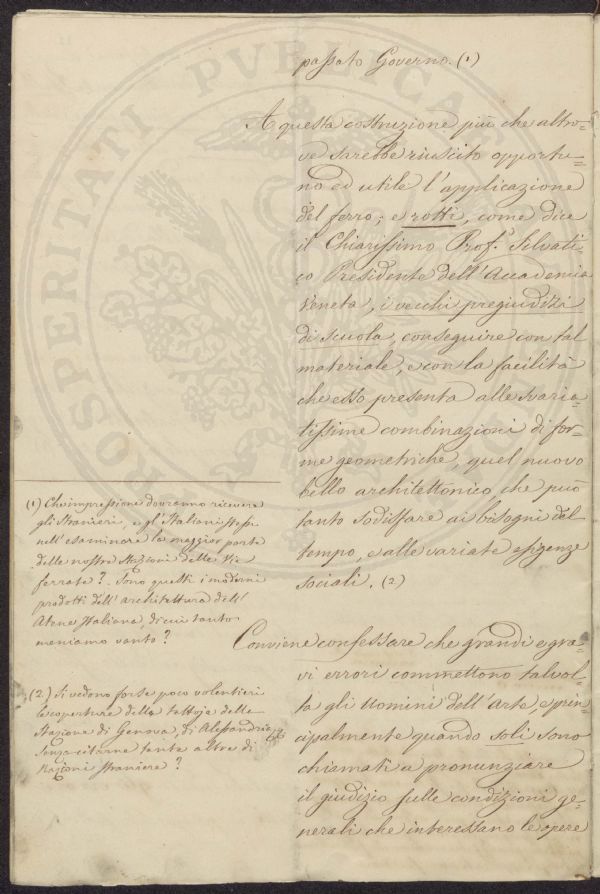 passato Governo. (1)
A questa costruzione più che altro=
ve sarebbe riuscito opportu=
no ed utile l'applicazione
del ferro; e rotti, come dice
il Chiarissimo Prof.r Selvati=
co Presidente dell'Accademia
Veneta, i vecchi pregiudizi
di scuola, conseguire con tal
materiale, e con la facilità
che esso presenta alle svaria=
tissime combinazioni di for=
me geometriche, quel nuovo
bello architettonico, che può
tanto sodisfare ai bisogni del
tempo, e alle variate esigenze
sociali. (2)
Conviene confessare che grandi e gra=
vi errori commettono talvol=
ta gli Uomini dell'Arte, e prin=
cipalmente quando soli sono
chiamati a pronunziare
il giudizio sulle condizioni ge=
nerali che interessano le opere
(1) Che impressione dovranno ricevere
gli Stranieri, e gl'Italiani stessi
nell'esaminare la maggior parte
delle nostre Stazioni delle Vie
ferrate? - Sono questi i moderni
prodotti dell'architettura dell'
Atene Italiana, di cui tanto
meniamo vanto?
(2) Si vedono forse poco volentieri
le coperture delle tettoje delle
Stazione di Genova, di Alessandria,
senza citarne tante altre di
Nazioni straniere?
PROSPERITATI PVBLICAE